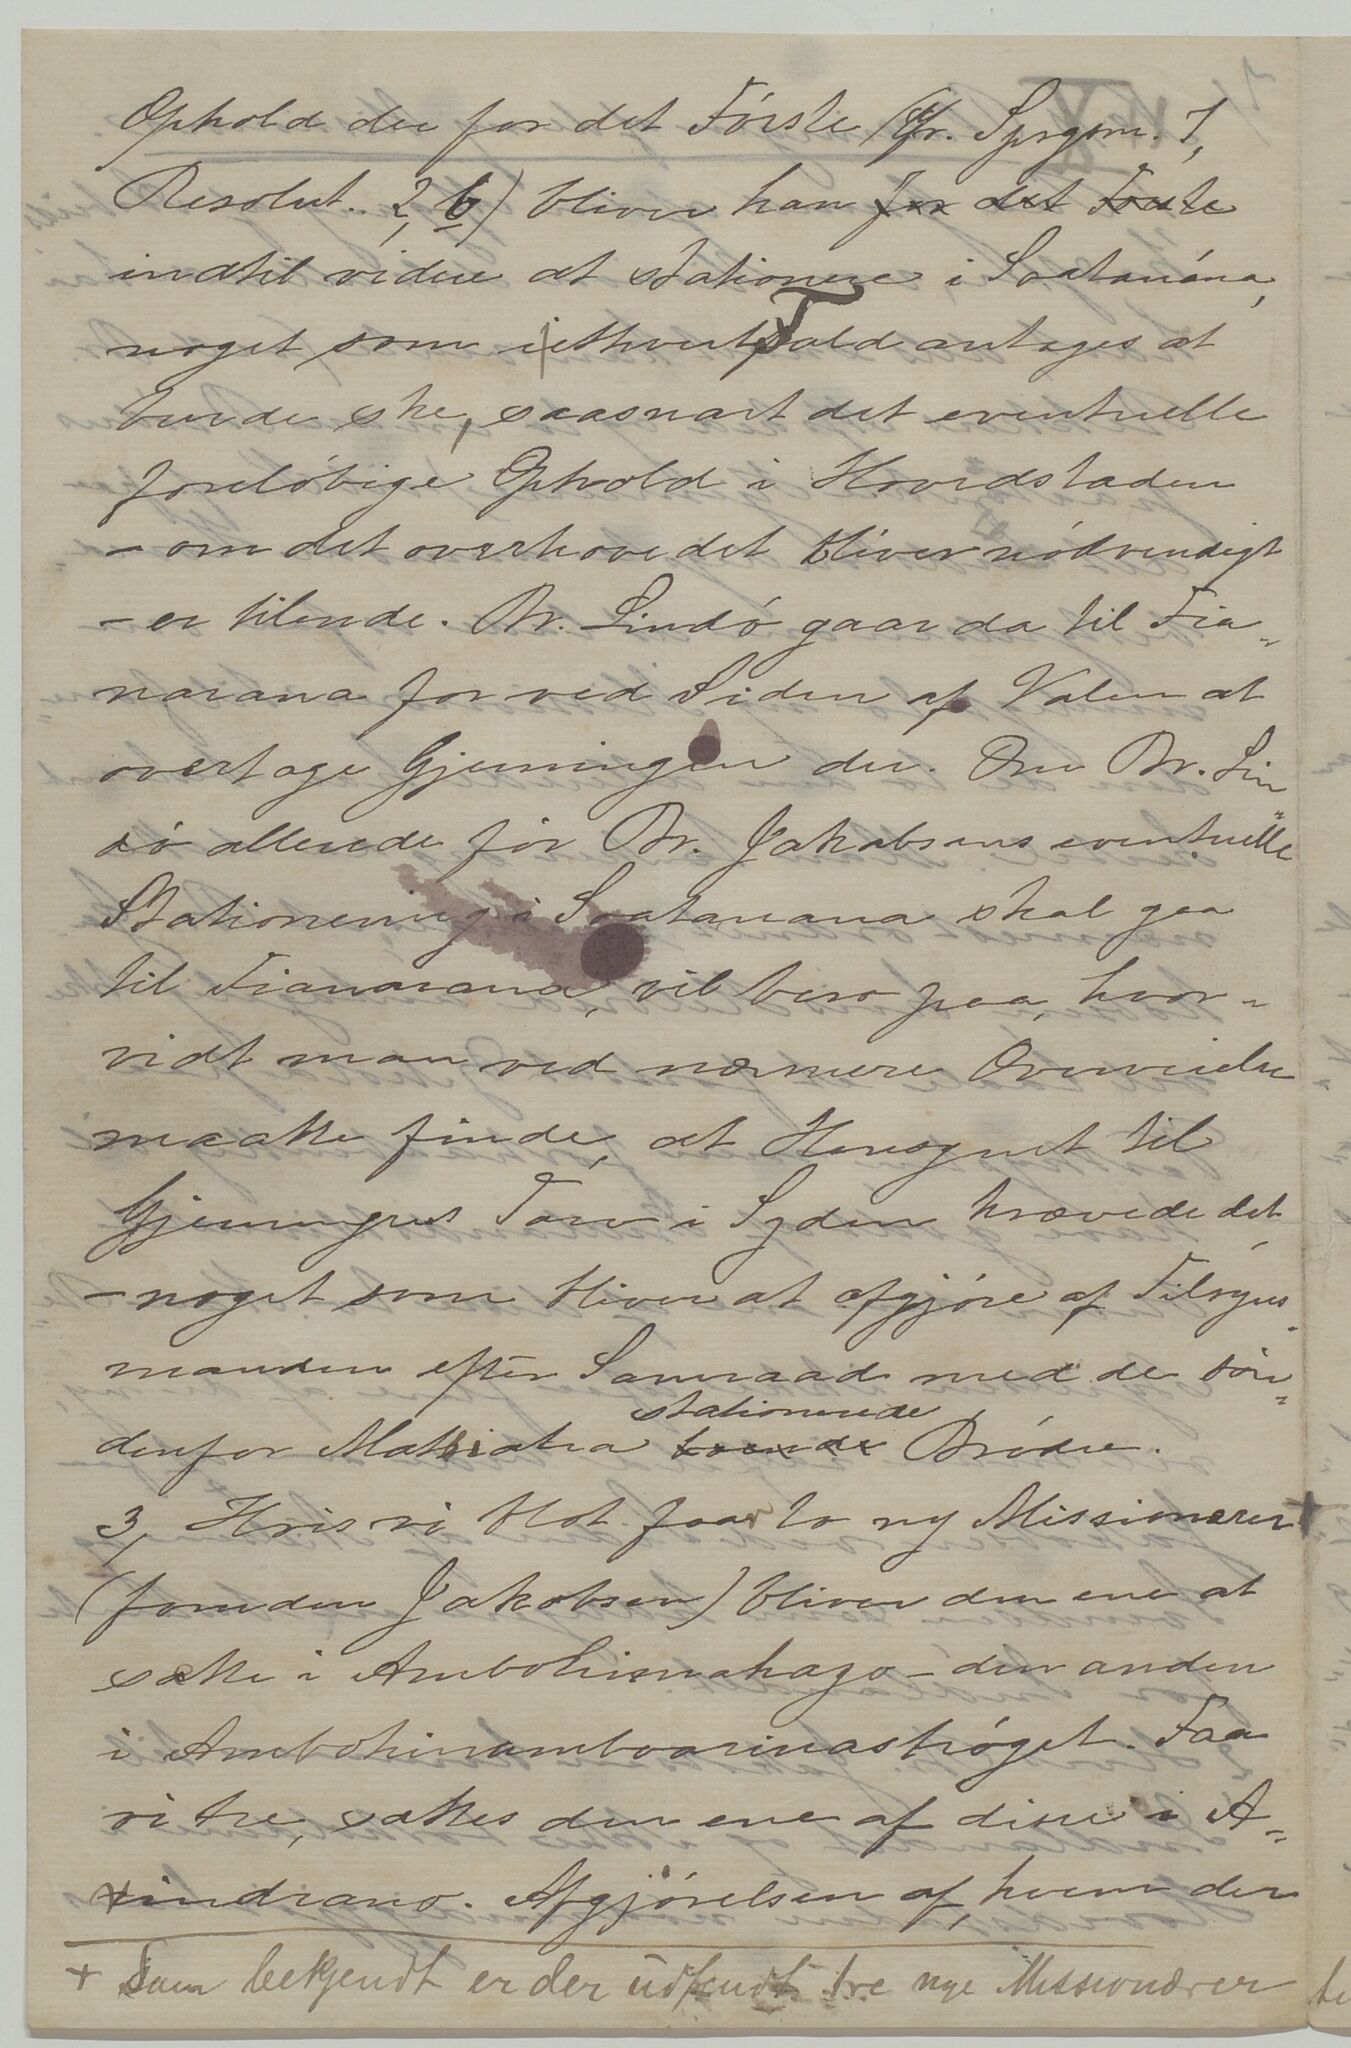 Ophold der for det Første (Cfr. Spgsm. 7,
Resolut. 2, b) bliver han for det Første
indtil videre at stationere i Soatanána,
noget som i ethvert Fald antages at
burde ske, saasnart det eventuelle
foreløbige Ophold i Hovedstaden
- om det overhovedet bliver nødvendigt
- er tilende. Br. Lindø gaar da til Fia-
narana for ved Siden af Valen at
overtage Gjerningen der. Om Br. Lin-
dø allerede før Br. Jakobsens eventuelle
Stationering i Soatanana skal gaa
til Fianarana, vil bero paa, hvor-
vidt man ved nærmere Overveielse
maatte finde, at Hensynet til
Gjerningens Tarv i Syden krævede det
- noget som bliver at afgjøre af Tilsyns-
manden efter Samraad med de søn-
stationerede
denfor Matsiatra boende Brødre.
3, Hvis vi blot faar to ny Missionærer +
(foruden Jakobsen) bliver den ene at
sætte i Ambohimahazo - den anden
i Ambohinamboarinastrøget. Faa
vi tre, sættes den ene af disse i A-
vindrano. Afgjørelsen af, hvem der
+ Som bekjendt er der udsendt tre nye Missionærer